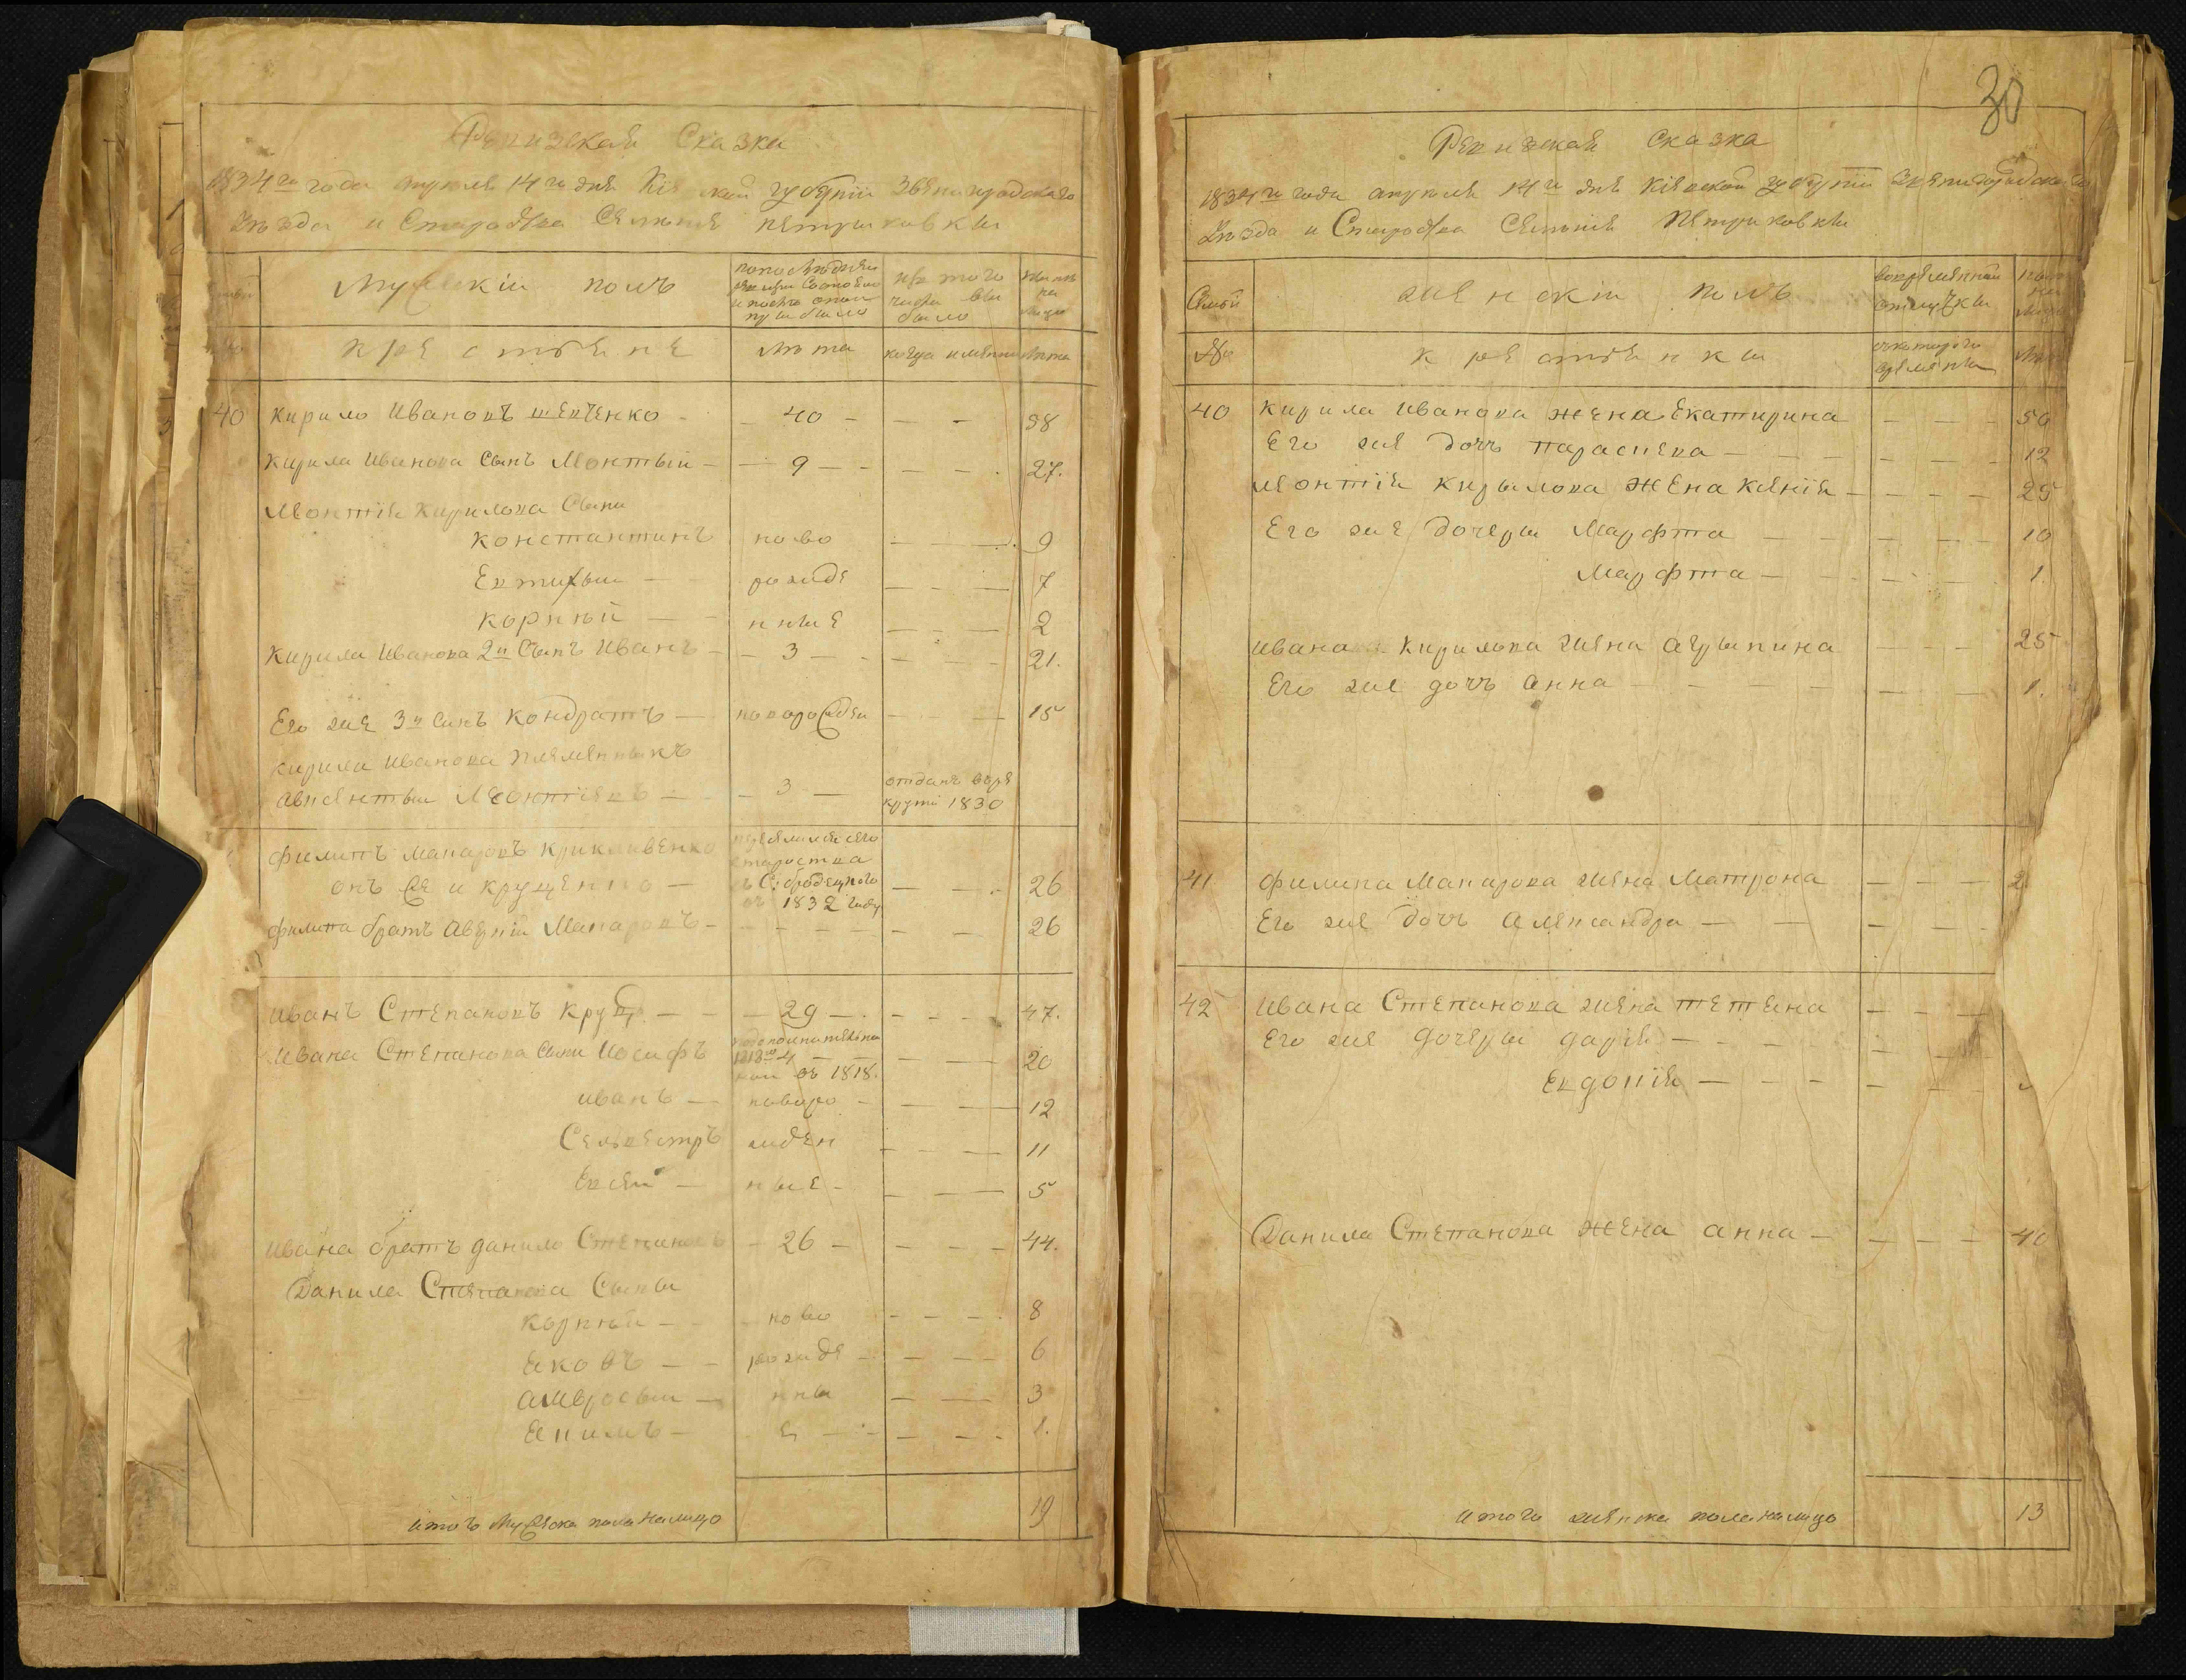 Ревизская Сказка
1834го года апреля 14го дня Кіевской губерніи Звенигородского
Уезда и Староства Селенія петриковки
Мужескій полъ
по последней ревизіи состояло и после оной прибыло
изъ того числа выбыло
Ныне на лицо
крестяне
лета
когда имянно
лета
40 кирило Ивановъ шевченко - 40 - 58
Кирила Иванова сынъ Леонтый - 9 - 27.
Леонтія Кирилова Сыны
константинъ ново 9
Евтихый рожде 7
корній нные 2
Кирила Иванова 2й Сынъ Иванъ - 3 - 21.
Его же 3й Сынъ кондратъ - новорожден 15
кирила Иванова племянныкъ
авксентый Леонтіевъ - 3 - отданъ въре
круты 1830
филипъ макаровъ крикливенко
онъ же и крущенко - 26
староства
1832 году
филипа братъ Аверкій Макаровъ - 26
Иванъ Степановъ крущ. - 29 - 47.
Ивана Степанова сыны Иосифъ 20
въ 1818.
иванъ - новоро 12
Селвестръ жден 11
Евсей - ные - 5
Ивана братъ данило Степановъ - 26 - 44.
Данила Степанова Сыны
корній - ново 8
Яковъ - рожде 6
амвросый - нны 3
Якимъ - е 1.
итого Мужеска пола налицо 19
30
Ревизская Сказка
1834го года апреля 14го дня Кіевской губерніи Звенигородского
Уезда и Староства Селенія Петриковки
Семьи
женскій полъ
вовременной отлучки
№
крестянки
скоторого времяни
40 Кирила Иванова жена Екатирина 50
Его же дочь параскева 12
Леонтія Кирылова жена ксенія 25
Его же дочеры Марфта 10
Марфта 1.
Ивана Кирилова жена агрыпина 25
Его же дочь анна 1.
41 филипа Макарова жена Матрона 2
Его же дочь александра
42 Ивана Степанова жена тетяна
Его же дочеры дарія
Евдокія
Данила Степанова жена анна 40
итого женска пола налицо 13